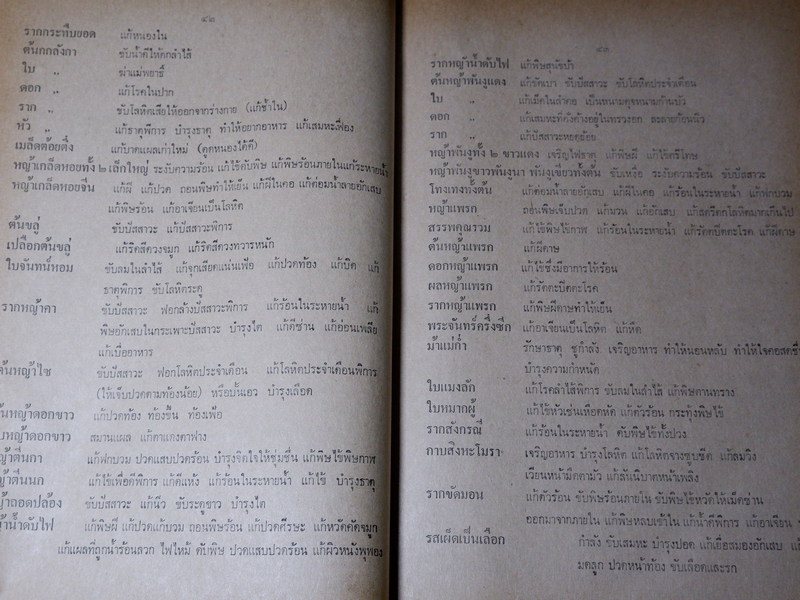 ๔๒
รากกระทืบยอด แก้หนองใน
ต้นกกลังกา ขับน้ำดีให้ตกลำไส้
ใบ ,, ฆ่าแม่พยาธิ์
ดอก ,, แก้โรคในปาก
ราก ,, ขับโลหิตเสียให้ออกจากร่างกาย (แก้ช้ำใน)
หัว ,, แก้ธาตุพิการ บำรุงธาตุ ทำให้อยากอาหาร แก้เสมหะเฟื่อง
เมล็ดต้อยติ่ง แก้บาดแผลเก่าใหม่ (ดูดหนองได้ดี)
หญ้าเกล็ดหอยทั้ง ๒ เล็กใหญ่ ระงับความร้อน แก้ไข้กับพิษ แก้พิษร้อนภายในแก้ระหายน้ำ
หญ้าเกล็ดหอยจีน แก้ฝี แก้ปวด ถอนพิษทำให้เย็น แก้ฝีในคอ แก้ต่อมน้ำลายอักเสบ
แก้พิษร้อน แก้อาเจียนเป็นโลหิต
ต้นขลู่ ขับปัสสาวะ แก้ปัสสาวะพิการ
เปลือกต้นขลู่ แก้ริดสีดวงจมูก แก้ริดสีดวงทวารหนัก
ใบจันทน์หอม ขับลมในลำไส้ แก้จุกเสียดแน่นเฟ้อ แก้ปวดท้อง แก้บิด แก้
ธาตุพิการ ขับโลหิตระดู
รากหญ้าคา ขับปัสสาวะ ฟอกล้างปัสสาวะพิการ แก้ร้อนในระหายน้ำ แก้
พิษอักเสบในกระเพาะปัสสาวะ บำรุงไต แก้ดีซ่าน แก้อ่อนเพลีย
แก้เบื่ออาหาร
ต้นหญ้าไซ ขับปัสสาวะ ฟอกโลหิตประจำเดือน แก้โลหิตประจำเดือนพิการ
(ให้เจ็บปวดตามท้องน้อย) หรือบั้นเอว บำรุงเลือด
ต้นหญ้าดอกขาว แก้ปวดท้อง ท้องขึ้น ท้องเฟ้อ
ใบหญ้าดอกขาว สมานแผล แก้ตาแดงตาฟาง
หญ้าตีนกา แก้ฟกบวม ปวดแสบปวดร้อน บำรุงจิตใจให้ชุ่มชื่น แก้พิษไข้พิษกาฬ
หญ้าตีนนก แก้ไข้เพื่อดีพิการ แก้ดีแห้ง แก้ร้อนในระหายน้ำ แก้ไข้ บำรุงธาตุ
หญ้าถอดปล้อง ขับปัสสาวะ แก้นิ่ว ขับระดูขาว บำรุงไต
หญ้าน้ำดับไฟ แก้พิษฝี แก้ปวดแก้บวม ถอนพิษร้อน แก้ปวดศีรษะ แก้หวัดคัดจมูก
แก้แผลที่ถูกน้ำร้อนลวก ไฟไหม้ ดับพิษ ปวดแสบปวดร้อน แก้ผิวหนังพุพอง
๔๓
รากหญ้าน้ำดับไฟ แก้พิษสุนัขบ้า
ต้นหญ้าพันงูแดง แก้ขัดเบา ขับปัสสาวะ ขับโลหิตประจำเดือน
ใบ ,, แก้เม็ดในลำคอ เป็นหนามดุจหนามก้านบัว
ดอก ,, แก้เสมหะที่คั่งค้างอยู่ในทรวงอก ละลายก้อนนิ่ว
ราก ,, แก้ปัสสาวะหยดย้อย
หญ้าพันงูทั้ง ๒ ขาวแดง เจริญไฟธาตุ แก้พิษฝี แก้ไข้ตรีโทษ
หญ้าพันงูขาวพันงูนา พันงูเขียวทั้งต้น ขับเหงื่อ ระงับความร้อน ขับปัสสาวะ
โทงเทงทั้งต้น แก้ต่อมน้ำลายอักเสบ แก้ฝีในคอ แก้ร้อนในระหายน้ำ แก้ฟกบวม
หญ้าแพรก ถอนพิษเจ็บปวด แก้บวม แก้อักเสบ แก้สตรีตกโลหิตมากเกินไป
สรรพคุณรวม แก้ไข้พิษไข้กาฬ แก้ร้อนในระหายน้ำ แก้รัตตปิตตะโรค แก้ฝีดาษ
ต้นหญ้าแพรก แก้ฝีดาษ
ดอกหญ้าแพรก แก้ไข้ซึ่งมีอาการให้ร้อน
ผลหญ้าแพรก แก้รัตตะปิตตะโรค
รากหญ้าแพรก แก้พิษฝีดาษทำให้เย็น
พระจันทร์ครึ่งซีก แก้อาเจียนเป็นโลหิต แก้หืด
ม้าแม่ก่ำ รักษาธาตุ ชูกำลัง เจริญอาหาร ทำให้นอนหลับ ทำให้ใจคอสดชื่น
บำรุงความกำหนัด
ใบแมงลัก แก้โรคลำไส้พิการ ขับลมในลำไส้ แก้พิษตานทราง
ใบหมากผู้ แก้ไข้หัวเช่นเหือดหัด แก้ตัวร้อน กระทุ้งพิษไข้
รากสังกรณี แก้ร้อนในระหายน้ำ ดับพิษไข้ทั้งปวง
กาบสิงหะโมรา เจริญอาหาร บำรุงโลหิต แก้โลหิตจางซูบซีด แก้ลมวิง
เวียนหน้ามืดตามัว แก้สันนิบาตหน้าเพลิง
รากขัดมอน แก้ตัวร้อน ขับพิษร้อนภายใน ขับพิษไข้หวัดให้เม็ดซ่าน
ออกมาจากภายใน แก้พิษหลบเข้าใน แก้น้ำดีพิการ แก้อาเจียน
รสเผ็ดเป็นเลือก กำลัง ขับเสมหะ บำรุงปอด แก้เยื่อสมองอักเสบ
มดลูก ปวดหน้าท้อง ขับเลือดและรก